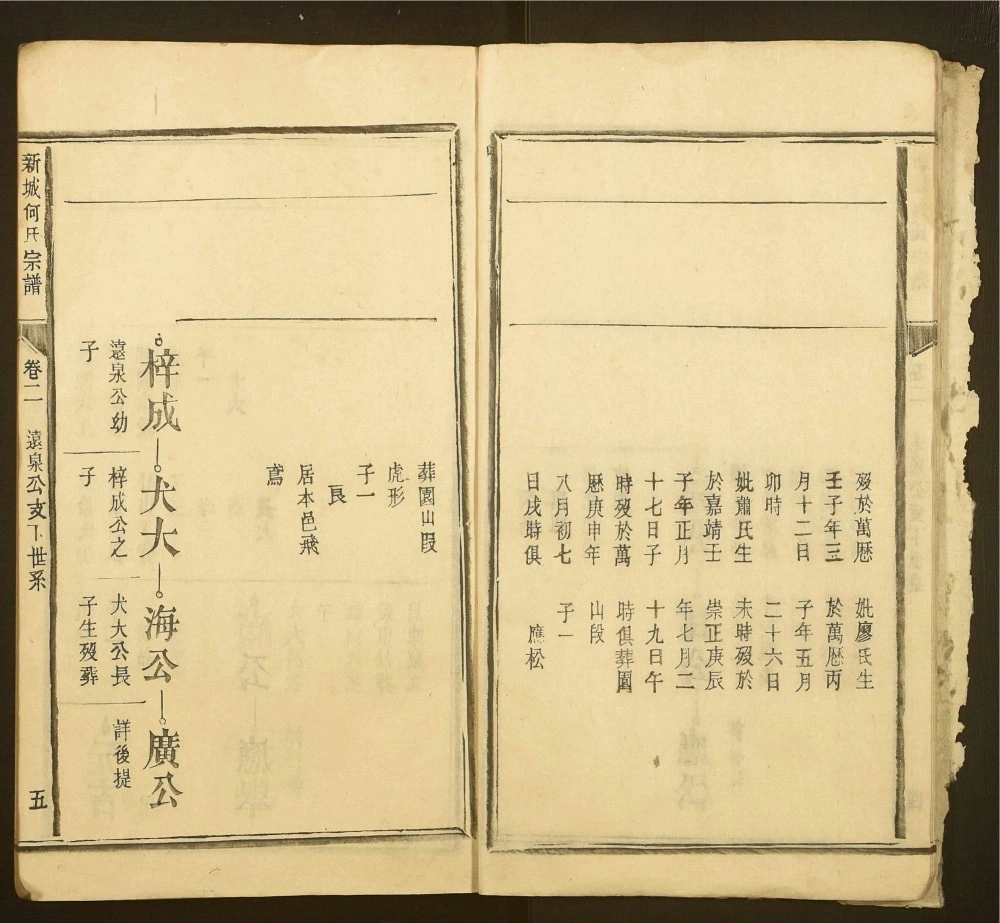 歿於萬厯
壬子年三
月十二日
卯時
妣蕭氏生
於嘉靖壬
子年正月
十七日子
時歿於萬
厯庚申年
八月初七
日戌時俱
葬園山段
虎形
子一
居本邑飛
鳶
妣廖氏生
於萬厯丙
子年五月
二十六日
未時歿於
崇正庚辰
年七月二
十九日午
時俱葬園
山段
子一
應松
梓成
遠泉公幼
子
犬大
梓成公之
子
海公
犬大公長
子生歿葬
廣公
詳後提
新城何氏宗譜
卷二
遠泉公支下世系
五